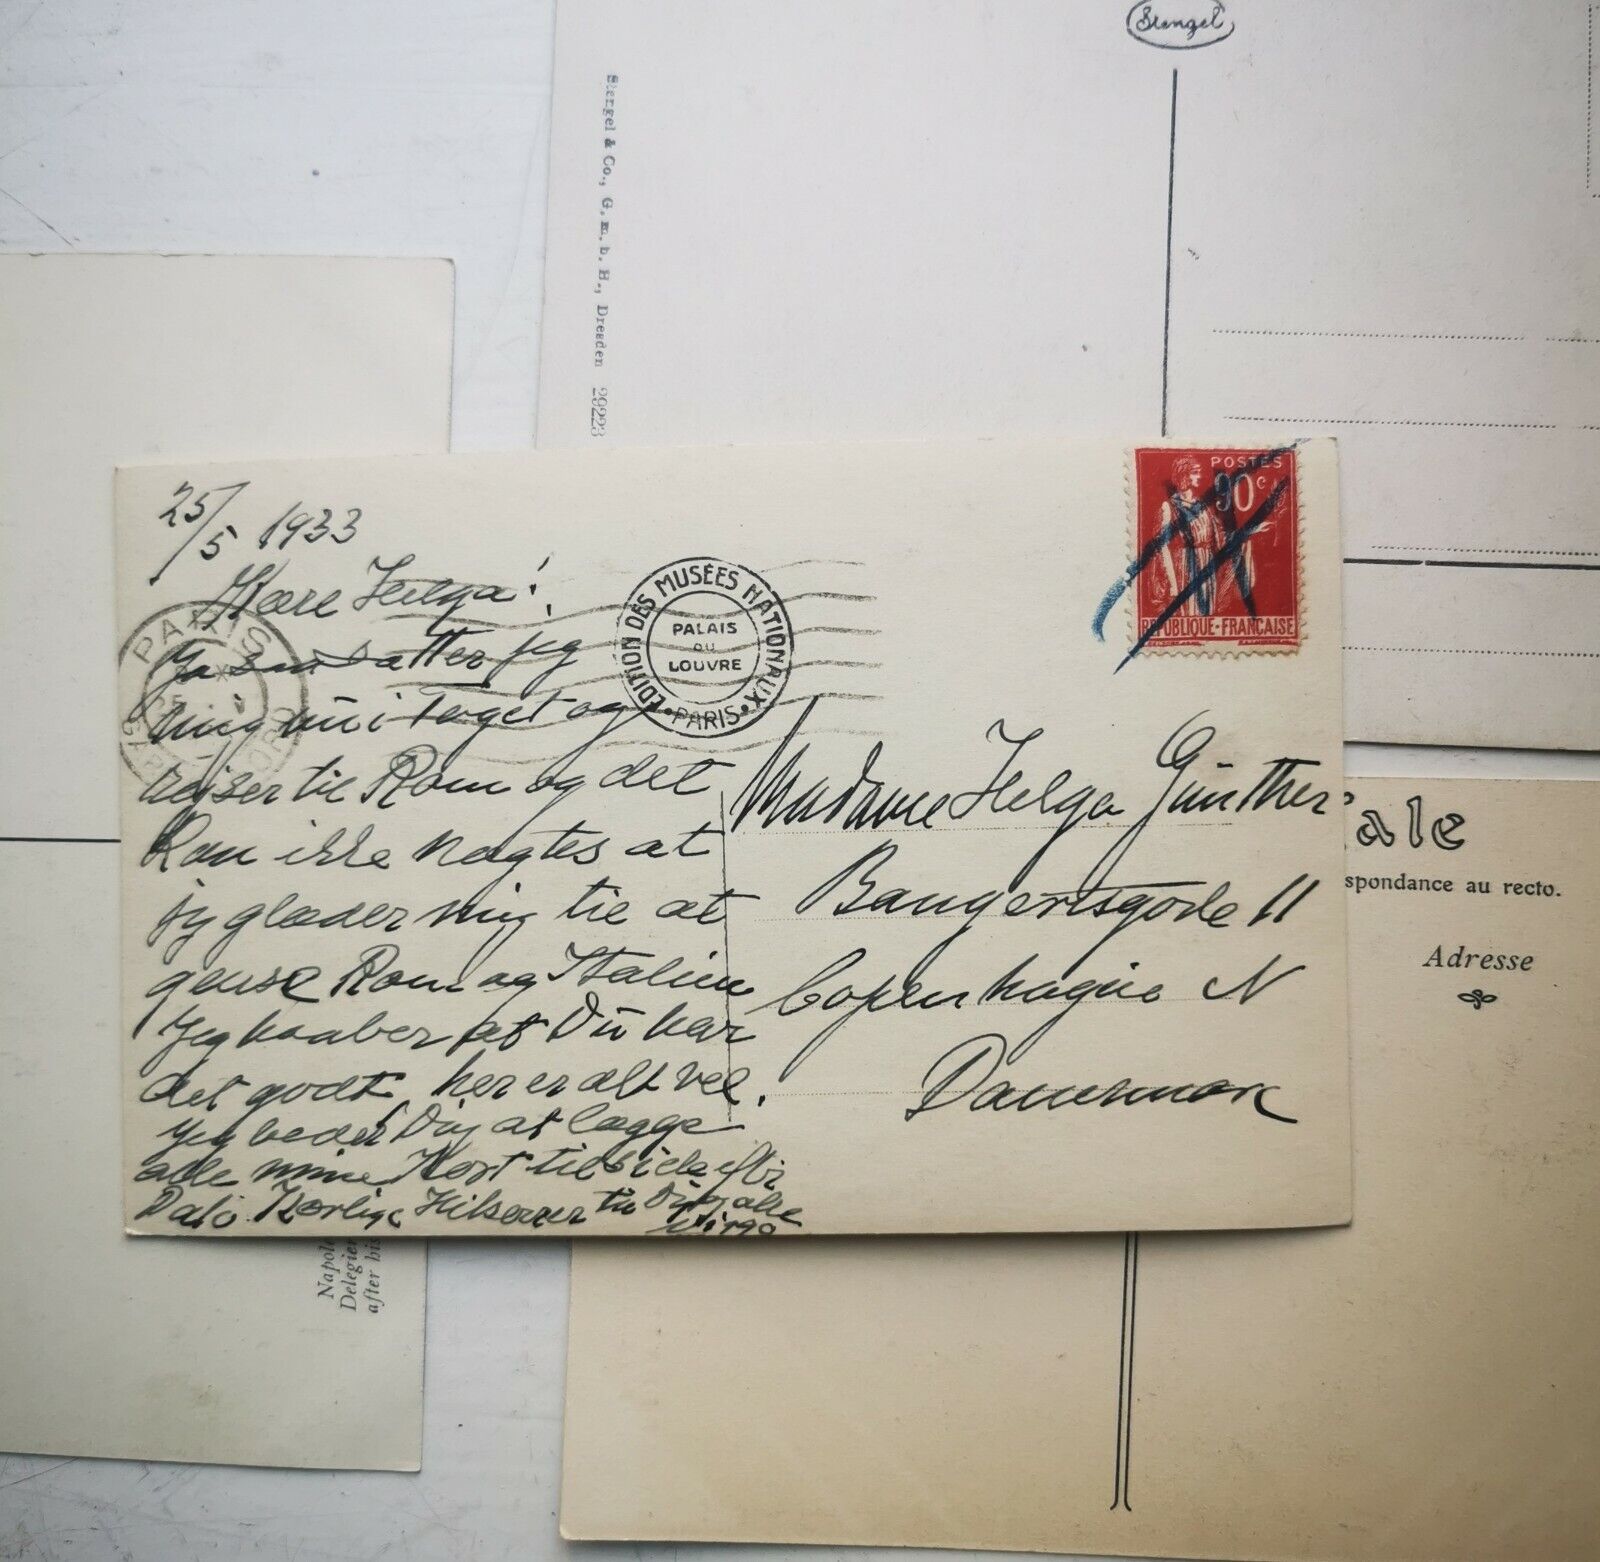 Stengel
Stengel & Co., G. m. b. H., Dresden 29223
25/5 1933
Kære Helga!
Ja saa sætter jeg
mig nu i Toget og
rejser til Rom og det
kan ikke nægtes at
jeg glæder mig til at
gense Rom og Italien
Jeg haaber at Du har
det godt, her er alt vel.
Jeg beder Dig at lægge
alle mine Kort til Side efter
Dato. Kærlige Hilsener til Dig og alle
Virgo
PARIS
GARE
EDITION DES MUSÉES NATIONAUX • PARIS •
PALAIS
DU
LOUVRE
POSTES
90c
REPUBLIQUE-FRANÇAISE
Madame Helga Günther
Bangertsgade 11
Copenhague N
Danemark
ale
spondance au recto.
Adresse
Napole
Delegier
after his